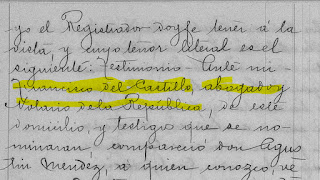 yo el Registrador doy fe tener á la
vista, y cuyo tenor literal es el
siguiente: Testimonio Ante mi
Francisco del Castillo, abogado y
Notario de la República, de este
domicilio, y testigos que se no-
minaran compareció don Agus
tin Mendez, a quien conozco, ve